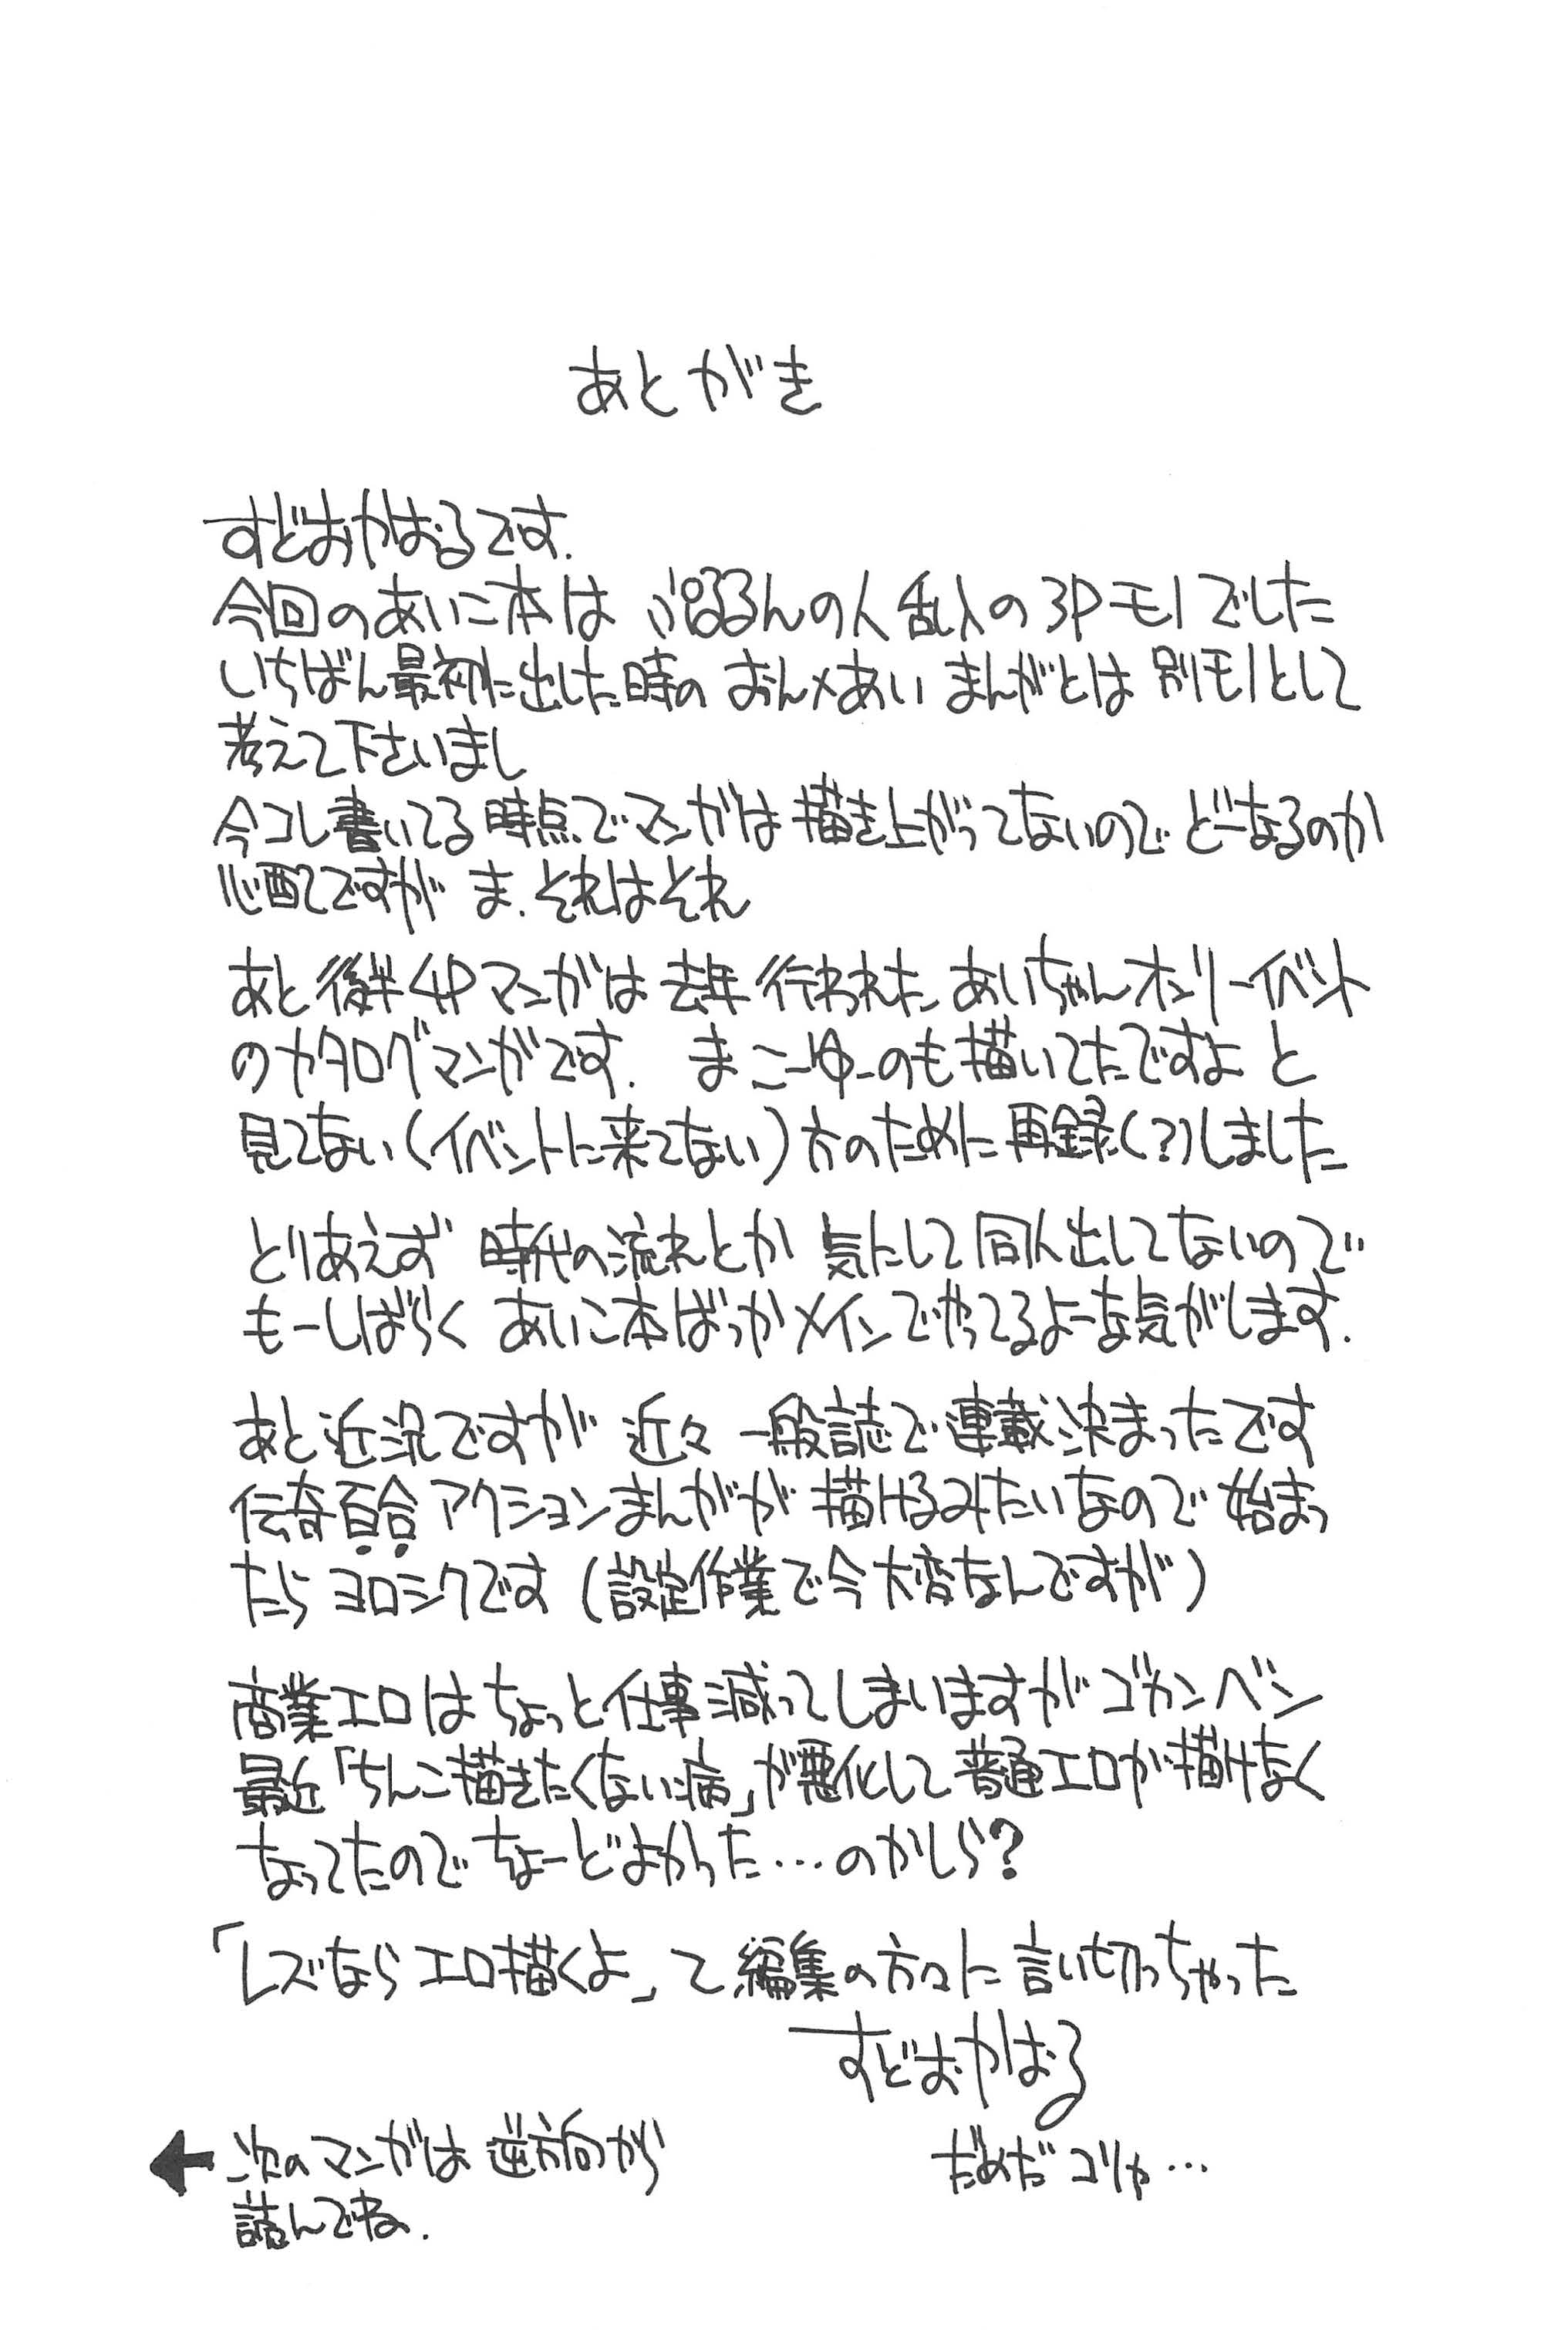 あとがき
すどおかおるです.
今回のあいこ本は ぷるるんの人乱入の3Pモノでした
いちばん最初に出した時の おん×あい まんがとは 別モノとして
考えて下さいまし
今コレ書いてる時点でマンガは描き上がってないので どーなるのか
心配ですが ま. それはそれ
あと後半4Pマンガは去年行われた あいちゃんオンリーイベント
のカタログマンガです. まこーゆーのも描いてたですよ と
見てない(イベントに来てない)方のために再録(?)しました
とりあえず 時代の流れとか 気にして同人出してないので
もーしばらく あいこ本ばっかメインでやってるよーな気がします.
あと近況ですが 近々 一般誌で連載決まったです
伝奇百合アクションまんがが 描けるみたいなので始まっ
たら ヨロシクです (設定作業で今大変なんですが)
商業エロはちょっと仕事減ってしまいますがゴカンベン
最近「ちんこ描きたくない病」が悪化して普通エロが描けなく
なってたので ちょーどよかった…のかしら?
「レズなら エロ描くよ」て編集の方々に言い切っちゃった
すどおかおる
だめだコリャ…
← 次のマンガは逆方向から
読んでね.